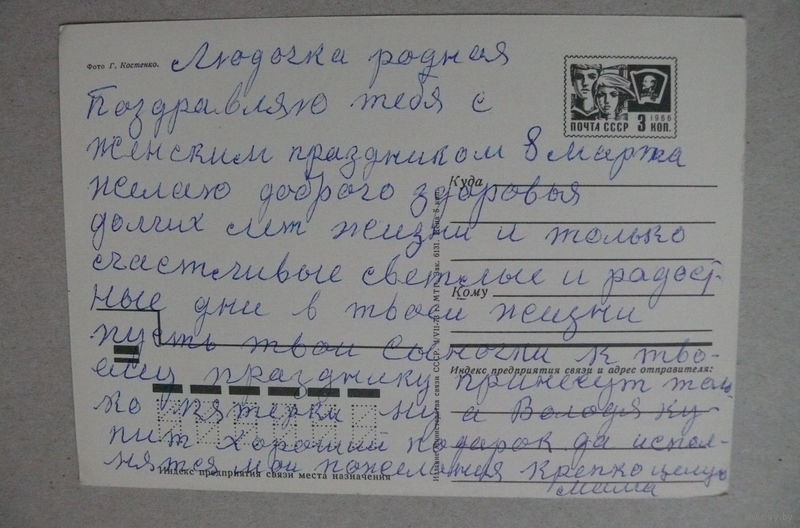 Фото Г. Костенко.
Людочка родная
Поздравляю тебя с
женским праздником 8 марта
желаю доброго здоровья
долгих лет жизни и только
счастливые светлые и радост-
ные дни в твоей жизни
пусть твои сыночки к тво-
ему празднику принесут толь
ко пятерки ну а Володя ку-
пит хороший подарок да испол-
нятся мои пожелания крепко целую
мама
ПОЧТА СССР 3 КОП.
1966
Куда
Кому
Индекс предприятия связи и адрес отправителя:
Индекс предприятия связи места назначения